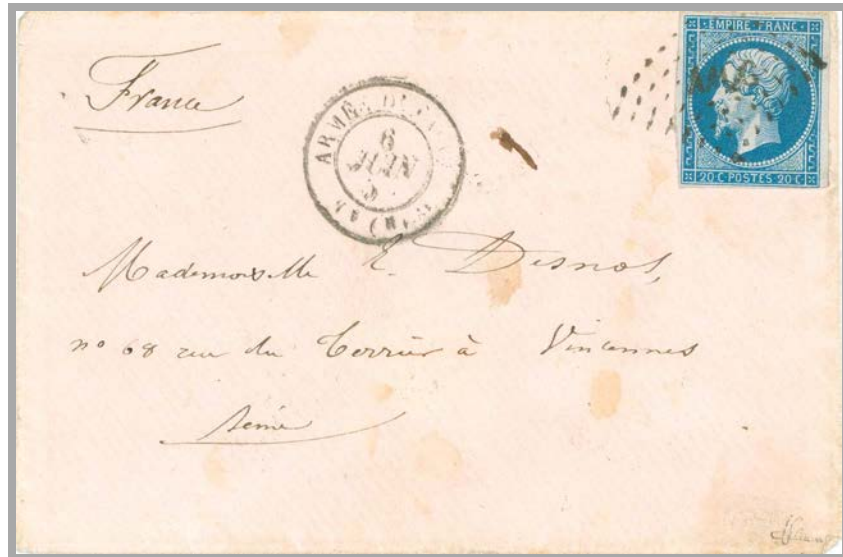 EMPIRE FRANC
20 C POSTES 20 C
France
6
JUIN
Mademoiselle E. Desnos,
n° 68 rue du Terrier à Vincennes
Seine